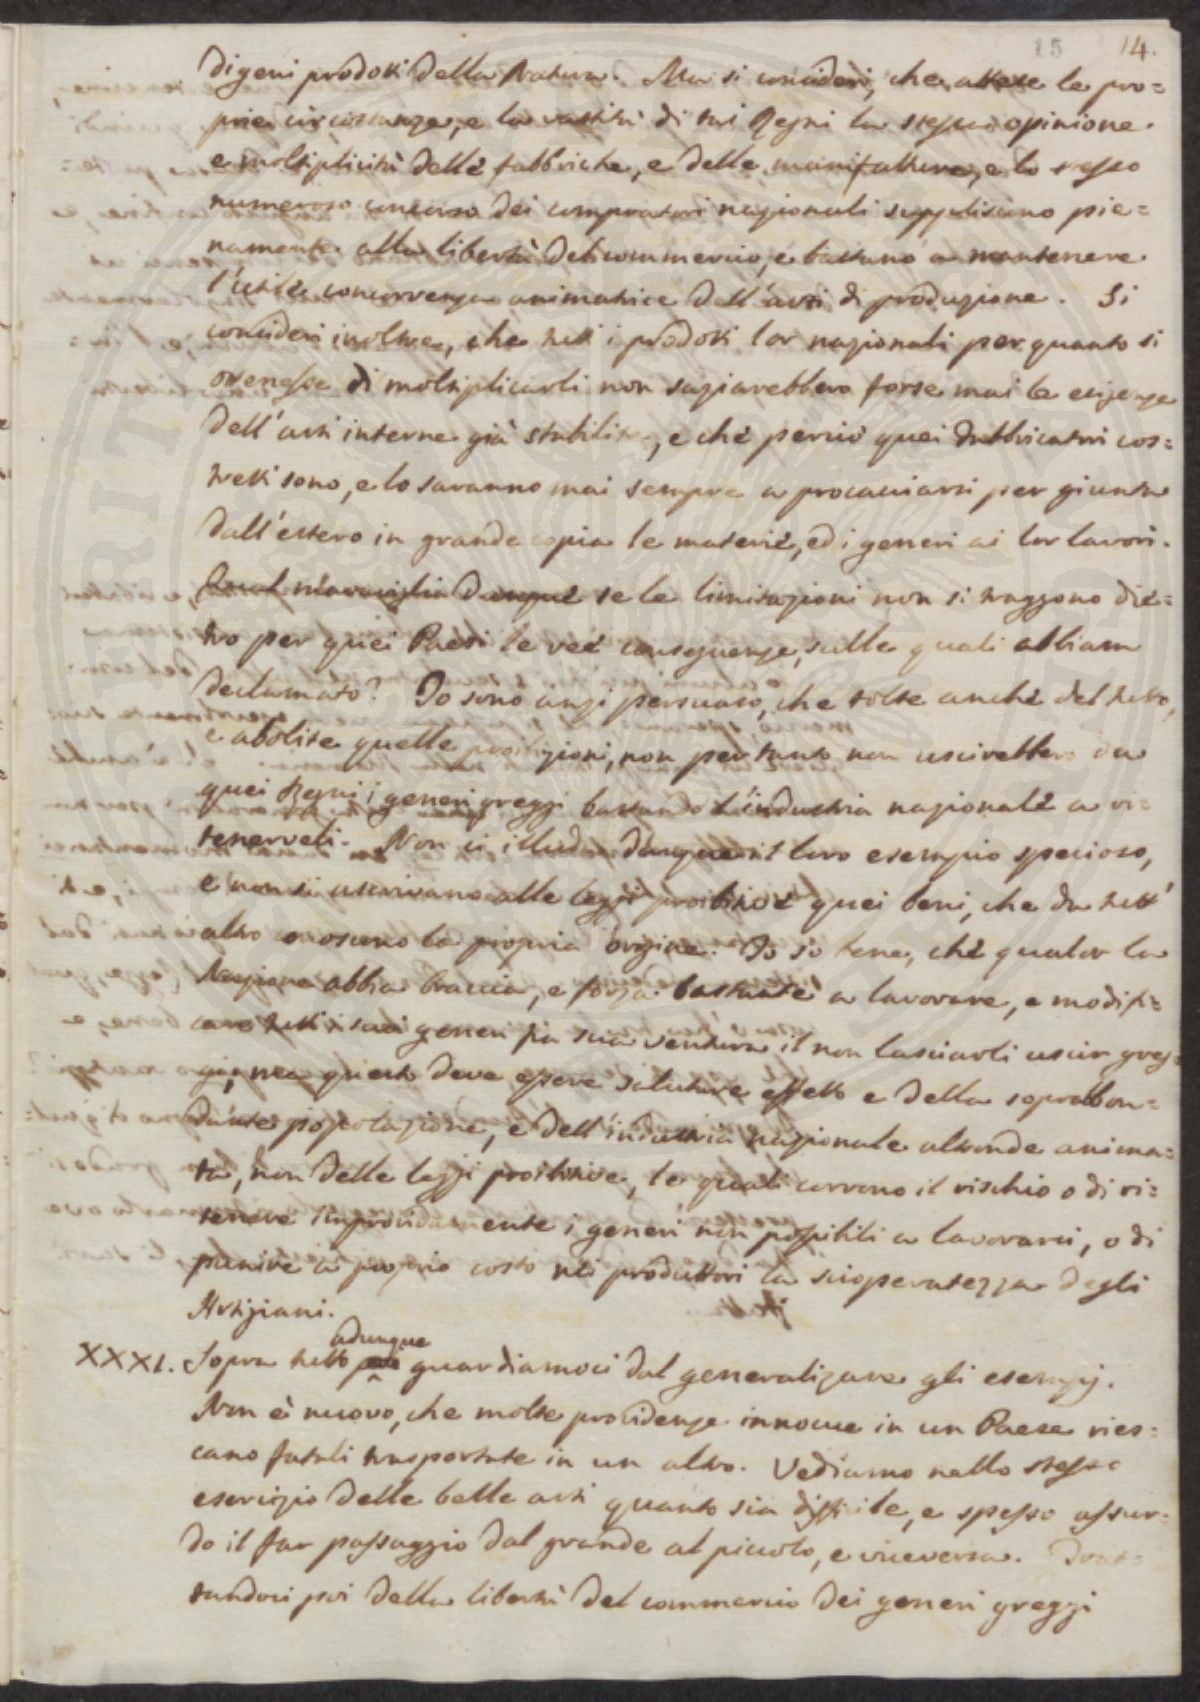 15 14.
di geni prodotti della Natura. Ma si consideri, che attese le pro=
prie circostanze, e la vastità di tai Regni la stessa opinione
e moltiplicità delle fabbriche, e delle manifatture, e lo stesso
numeroso concorso dei compratori nazionali suppliscono pie=
namente alla libertà del commercio, e bastano a mantenere
l'utile concorrenza animatrice dell'arti di produzione. Si
consideri inoltre, che tutti i prodotti lor nazionali per quanto si
ottenesse di moltiplicarli non saziarebbero forse mai le esigenze
dell'arti interne già stabilite, e che perciò quei fabbricatori cos=
tretti sono, e lo saranno mai sempre a procacciarsi per giunta
dall'estero in grande copia le materie, ed i generi ai lor lavori.
Qual maraviglia dunque se le limitazioni non si traggono die=
tro per quei Paesi le ree conseguenze, sulle quali abbiam
declamato? Io sono anzi persuaso, che tolte anche del tutto,
e abolite quelle proibizioni, non per tanto non uscirebbero da
quei Regni i generi greggi bastando l'industria nazionale a ri=
tenerveli. Non ci illuda dunque il loro esempio specioso,
e non si ascrivano alle leggi proibitive quei beni, che da tutt'
altro conoscono la propria origine. Io so bene, che qualor la
Nazione abbia braccia, e forza bastante a lavorare, e modifi=
care tutti i suoi generi fia sua ventura il non lasciarli uscir greg=
gi, ma questo deve essere salutare effetto e della soprabbon=
dante popolazione, e dell'industria nazionale altronde anima=
ta, non delle leggi proibitive, le quali corrono il rischio o di ri=
tenere improvidamente i generi non possibili a lavorarsi, o di
punire a proprio costo nei produttori la scioperatezza degli
Artigiani.
XXXI. Sopra tutto adunque guardiamoci dal generalizare gli esempj.
Non è nuovo, che molte providenze innocue in un Paese ries=
cano fatali trasportate in un altro. Vediamo nello stesso
esercizio delle belle arti quanto sia difficile, e spesso assur=
do il far passaggio dal grande al piccolo, e viceversa. Trat=
tandosi poi della libertà del commercio dei generi greggi